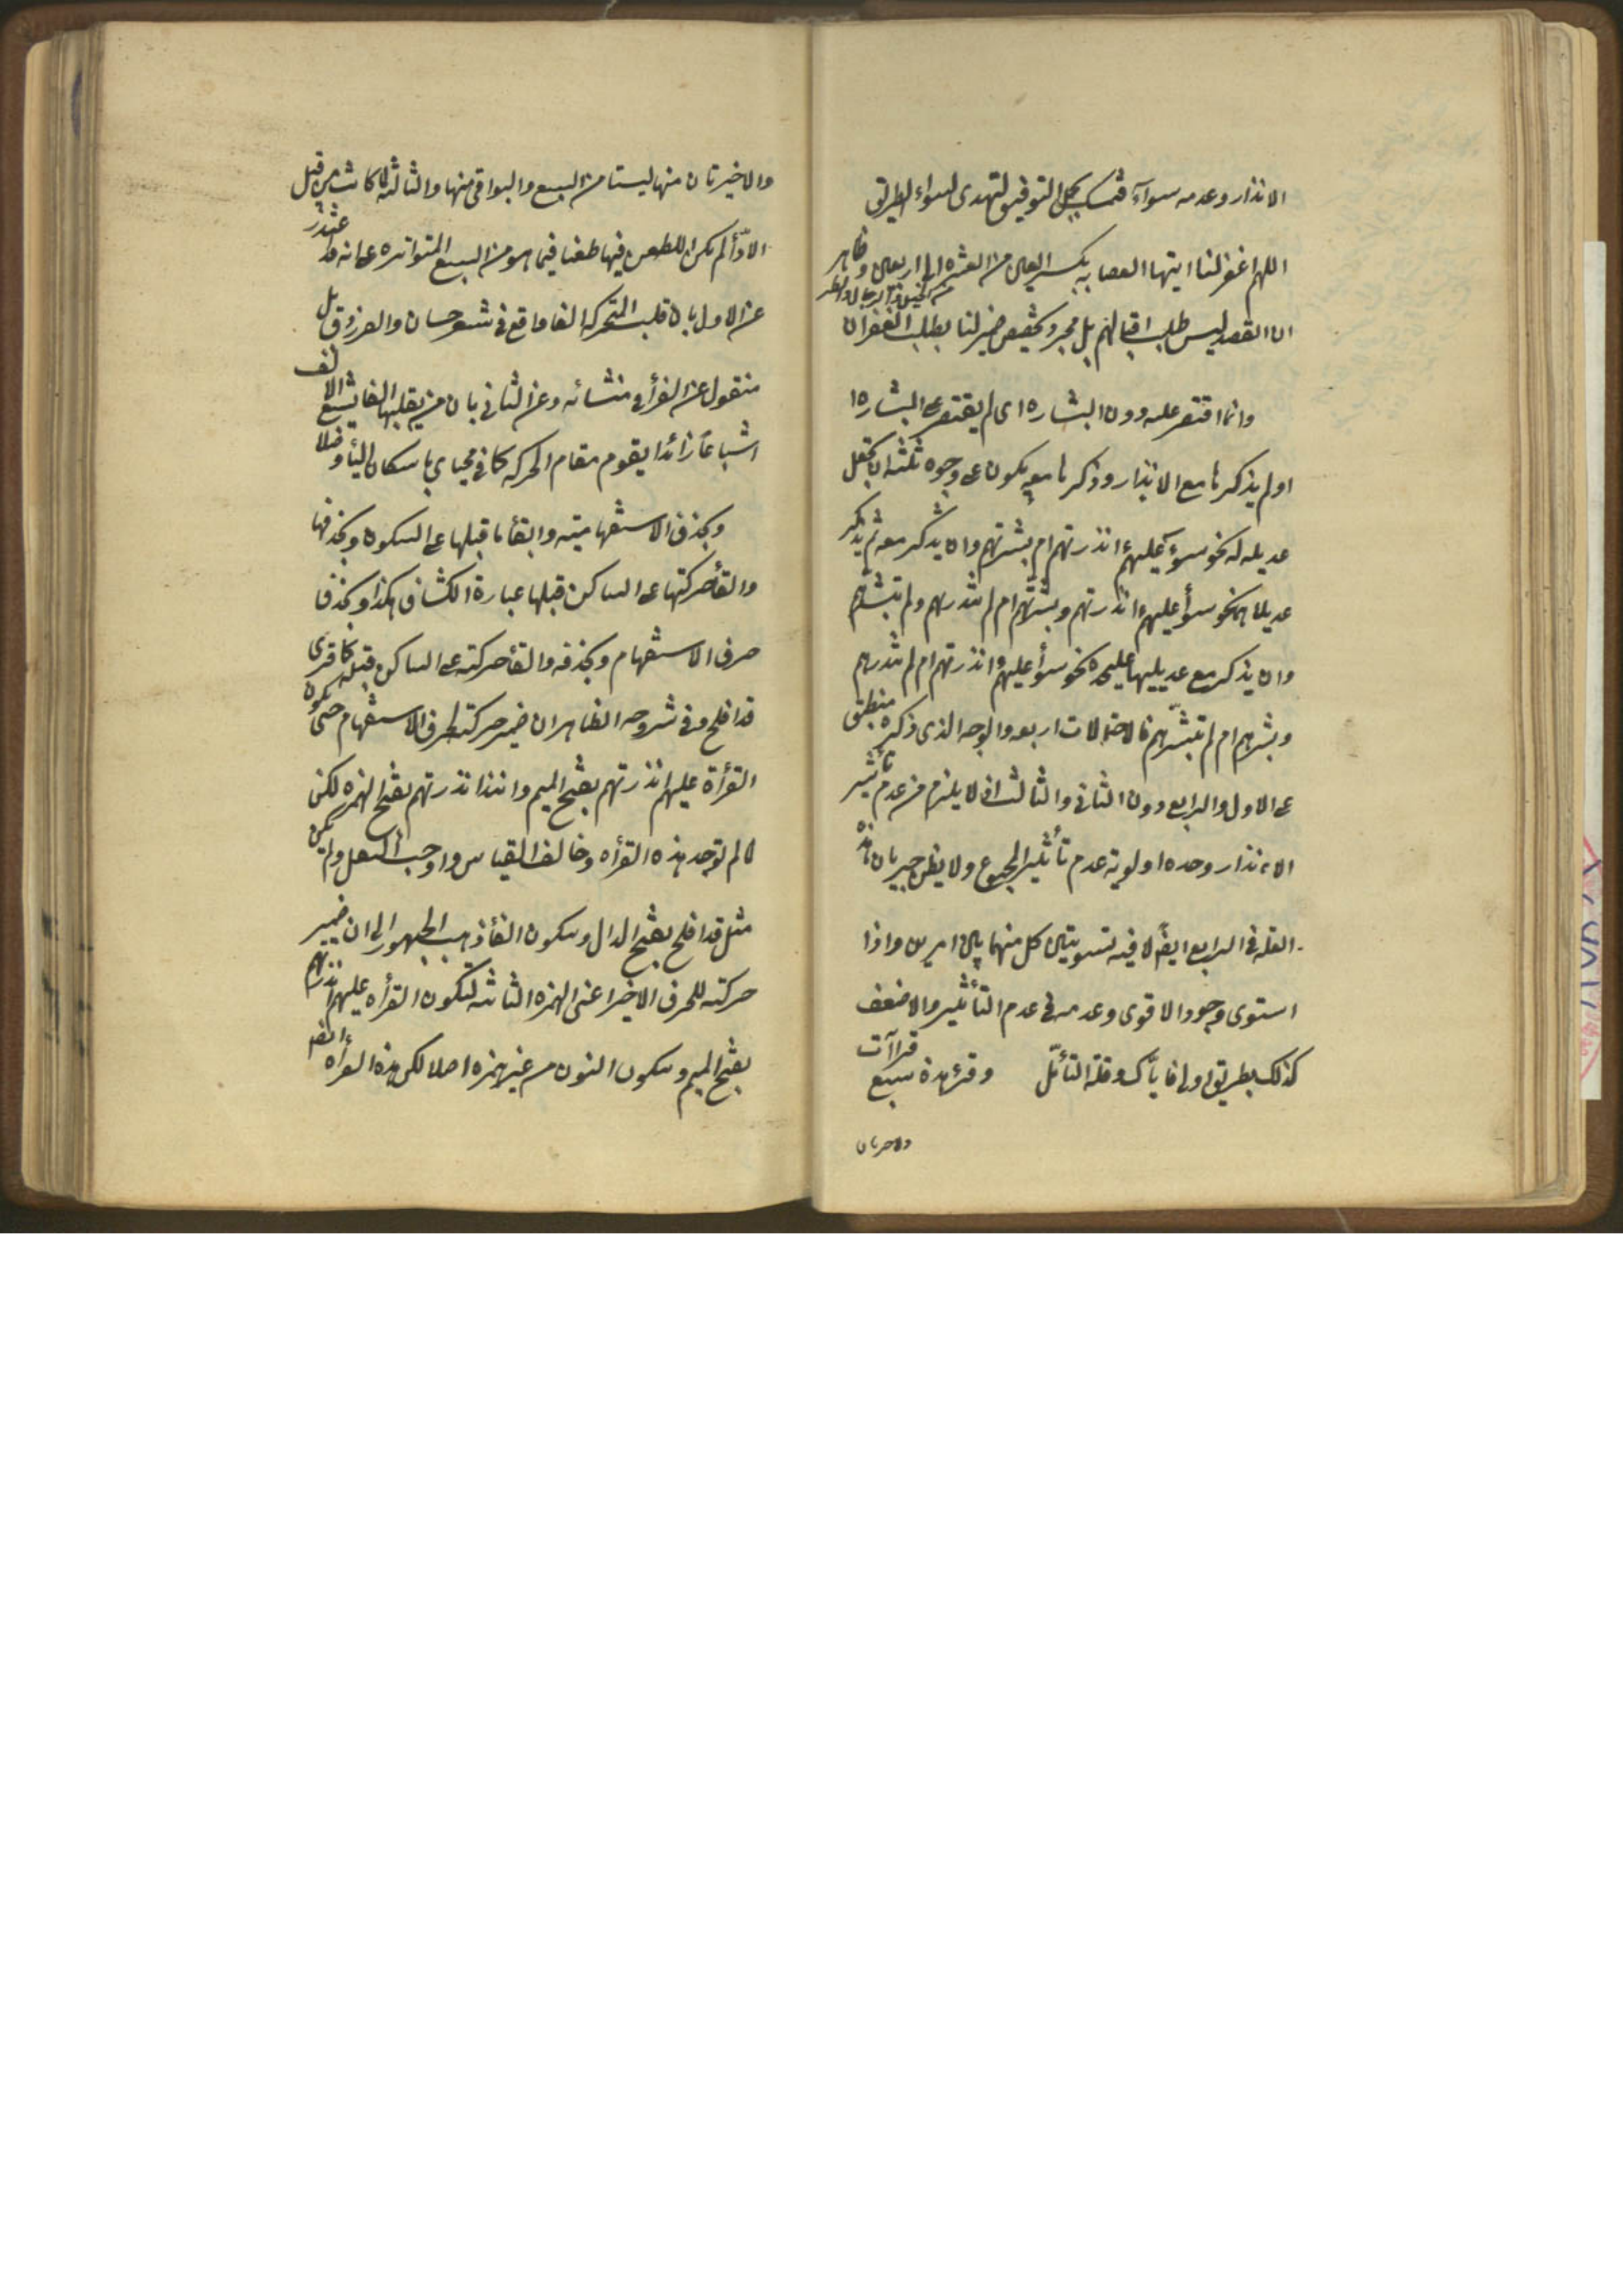 الانذار وعدمه سوآء فتمسك بحبل التوفيق لتهدى لسواء الطريق
اللهم اغفر لنا ايتها العصابه بكسر العين من العشره الى اربعين وظاهر
من الخيل والرجال والطير
ان القصد ليس طلب اقبالهم بل مجرد تخصيص ضمير لنا بطلب الغفران
وانما اقتصر عليه دون البشاره اى لم يقتصر على البشاره ا
او لم يذكرها مع الانذار وذكرها معه يكون على وجوه ثلثه ان تجعل
عديله له نحو سوآء عليهم ءانذرتهم ام بشرتهم وان يذكر معه ثم يذكر
عديلاهما نحو سوأ عليهم ءانذرتهم وبشرتهم ام لم تنذرهم ولم تبشرهم
وان يذكر مع عديليها عليحده نحو سوأ عليهم ءانذرتهم ام لم تنذرهم
وبشرتهم ام لم تبشرهم فالاحتمالات اربعه والوجه الذى ذكره منطبق
على الاول والرابع دون الثانى والثالث اذ لا يلزم من عدم تأثير
الانذار وحده اولوية عدم تأثير المجموع ولا يظن جريان هذه
العله فى الرابع ايضا لان فيه تسويتين كل منهما بين امرين واذا
استوى وجود الاقوى وعدمه فى عدم التأثير والاضعف
كذلك بطريق اولى فاياك وقلة التأمل وقرئ هذه سبع قراآت
والاخيرتان
والاخيرتان منها ليستا من السبع والبواقى منها والثالثه لما كانت من قبل
الادأ لم يكن الطعن فيها طعنا فيما هو من السبع المتواتره على انه قد يعتذر
عن الاول بان قلب المتحركه الفا واقع فى شعر حسان والفرزدق بل
منقول عن الفرأ فى منسأته وعن الثانى بان من يقلبها الفا يشبع الالف
اشباعا زائدا يقوم مقام الحركه كما فى محياى باسكان اليأ وصلا
وبحذف الاستفهاميته وابقأ ما قبلها على السكون وبحذفها
والقأ حركتها على الساكن قبلها عبارة الكشاف هكذا وبحذف
حرف الاستفهام وبحذفه والقأ حركته على الساكن قبله كما قرى
قد افلح وفى شروحه الظاهر ان ضمير حركته لحرف الاستفهام حتى تكون
القرأة عليهم انذرتهم بفتح الميم وانذرتهم بفتح الهمزه لكن
لما لم توجد هذه القرأه وخالف القياس واوجب الثقل ولم يكن
مثل قد افلح بفتح الدال وسكون الفأ ذهب الجمهور الى ان ضمير
حركته للحرف الاخير اعنى الهمزه الثانيه لتكون القرأه عليهم نذرتهم
بفتح الميم وسكون النون من غير همزه اصلا لكن هذه القرأه ايضا